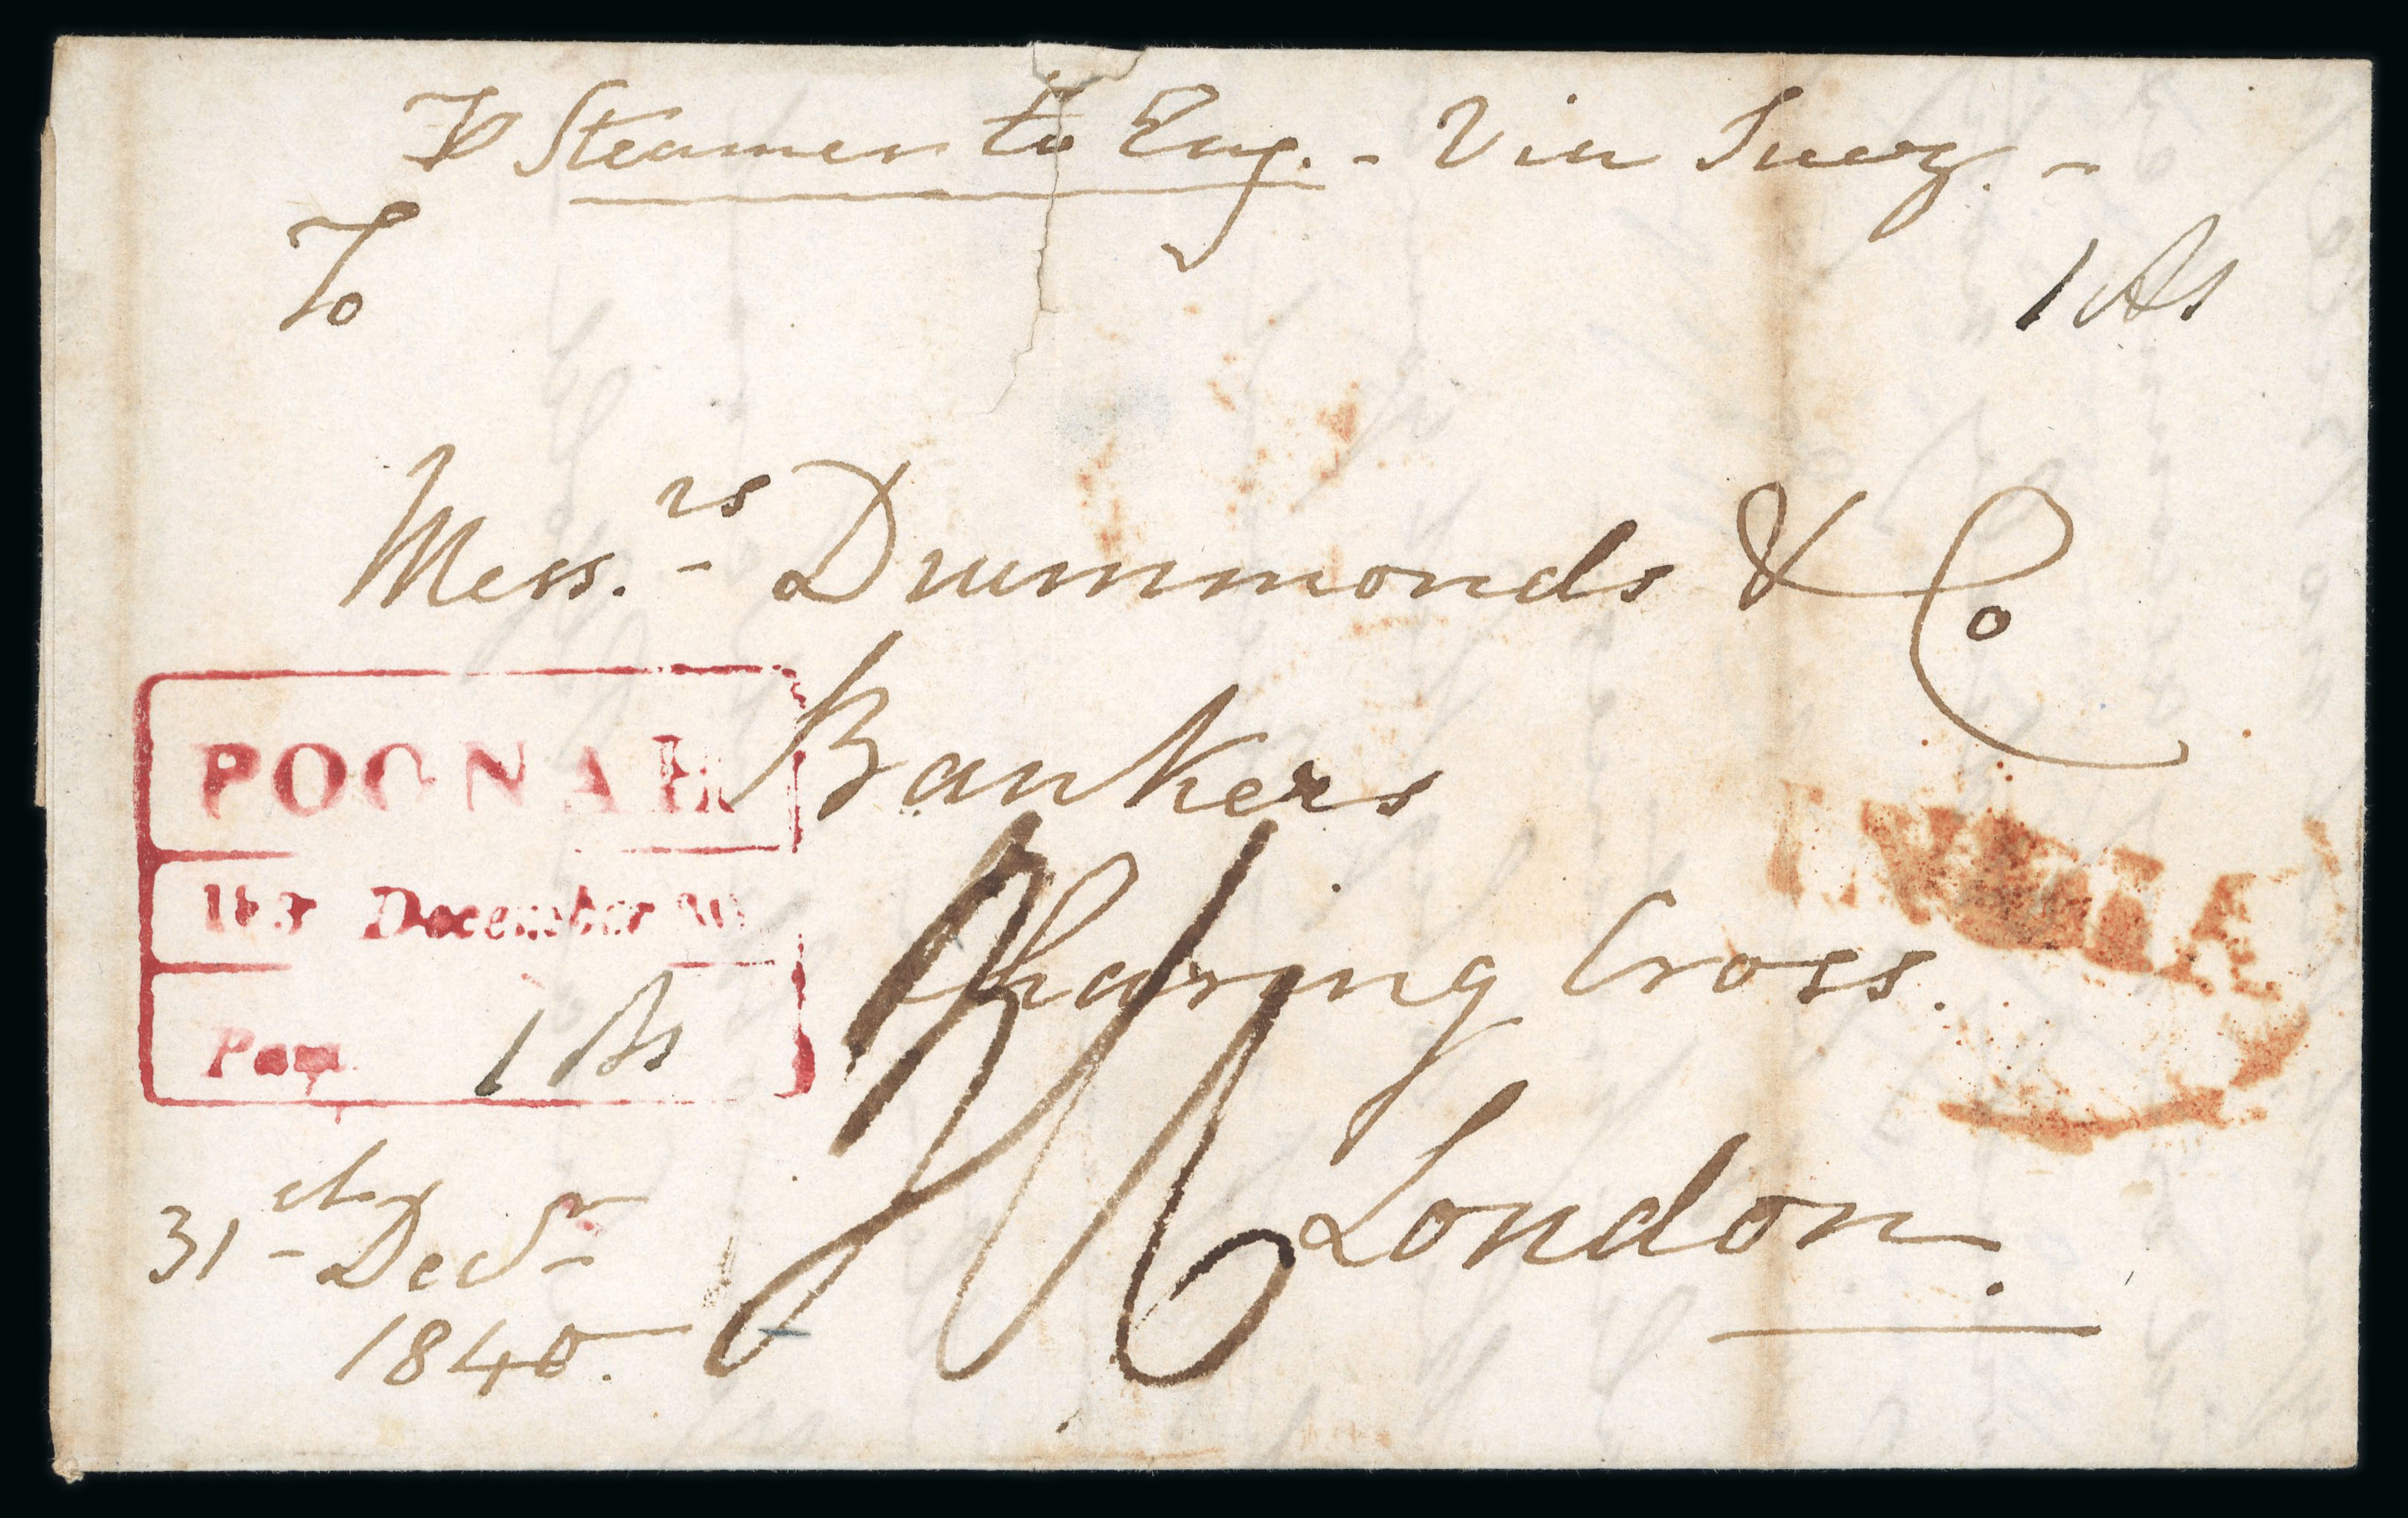 P Steamer to Eng. - Via Suez. -
To
1 As
Mess.rs Drummonds & Co
Bankers
Charing Cross.
London.
POONAH
December
1 As
INDIA
31st Decr
1840.